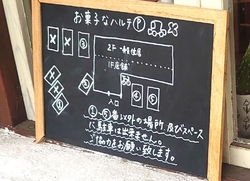 お菓子なハルテ Ⓟ
2F 一般住居
1F 店舗
入口
①~⑤番以外の場所、及びスペース
に駐車は出来ません。
ご協力をお願い致します。